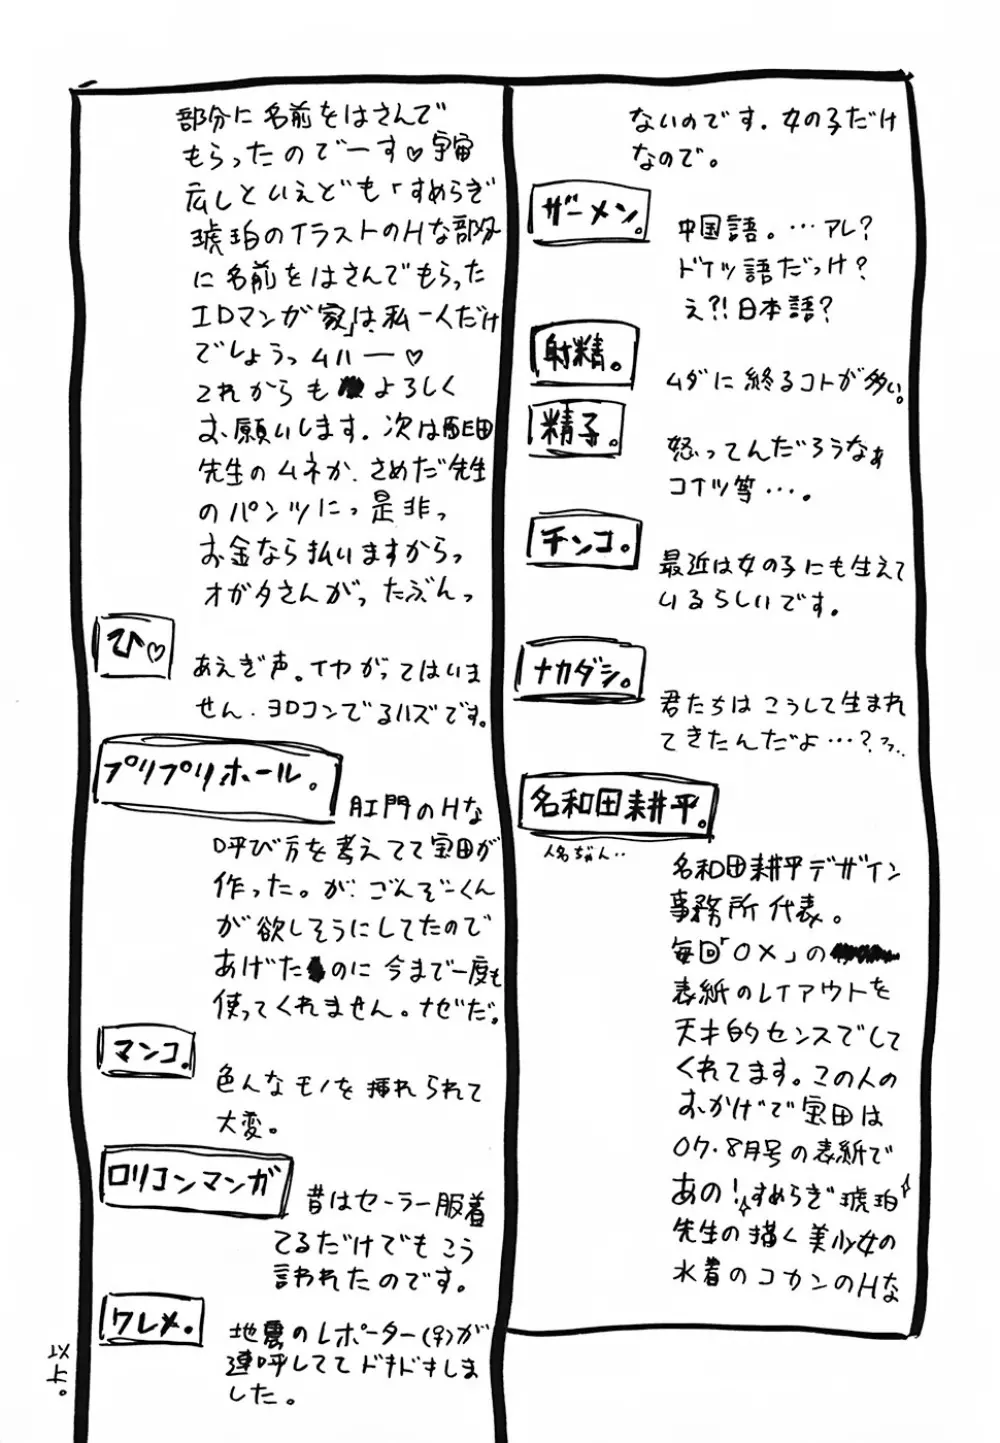 ないのです。女の子だけ
なので。
ザーメン。
中国語。…アレ？
ドイツ語だっけ？
え?!日本語？
射精。
ムダに終るコトが多い。
精子。
怒ってんだろうなぁ
コイツ等…。
チンコ。
最近は女の子にも生えて
いるらしいです。
ナカダシ。
君たちはこうして生まれ
てきたんだよ…？フフ..
名和田耕平。
人名ぢゃん..
名和田耕平デザイン
事務所代表。
毎回「OX」の
表紙のレイアウトを
天才的センスでして
くれてます。この人の
おかげで宝田は
07.8月号の表紙で
あの！すめらぎ琥珀
先生の描く美少女の
水着のコカンのHな
部分に名前をはさんで
もらったのでーす♡宇宙
広しといえども「すめらぎ
琥珀のイラストのHな部分
に名前をはさんでもらった
エロマンガ家」は私一人だけ
でしょうっムハー♡
これからもよろしく
お願いします。次は
先生のムネか、さめだ先生
のパンツにっ是非っ
お金なら払いますからっ
オガタさんがっ たぶんっ
ひ♡
あえぎ声。イヤがってはいま
せん。ヨロコンでるハズです。
プリプリホール。
肛門のHな
呼び方を考えてて宝田が
作った。が、ごんぞーくん
が欲しそうにしてたので
あげたのに今まで一度も
使ってくれません。ナゼだ。
マンコ。
色んなモノを挿れられて
大変。
ロリコンマンガ
昔はセーラー服着
てるだけでもこう
言われたのです。
ワレメ。
地震のレポーター(♀)が
連呼しててドキドキしま
した。